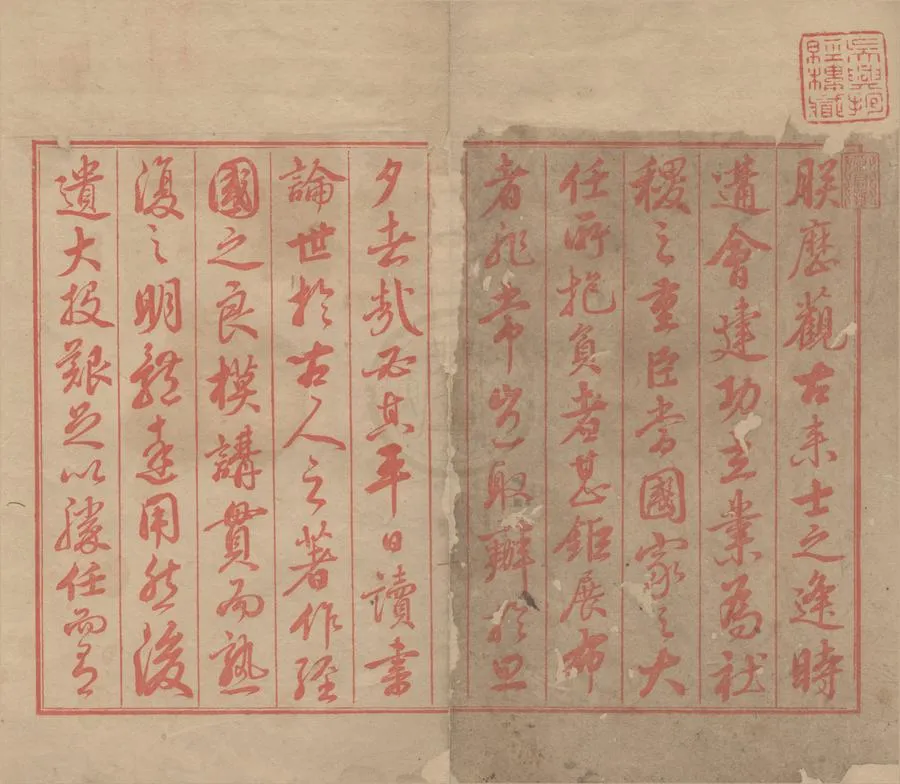 吳興抱經樓藏
朕歷觀古来士之逢時
遘會建功立業為社
稷之重臣當國家之大
任所抱負者甚鉅展布
者非常豈取辦於旦
夕者哉必其平日讀書
論世於古人之著作經
國之良模講貫而熟
復之明體達用然後
遺大投艱足以勝任而有